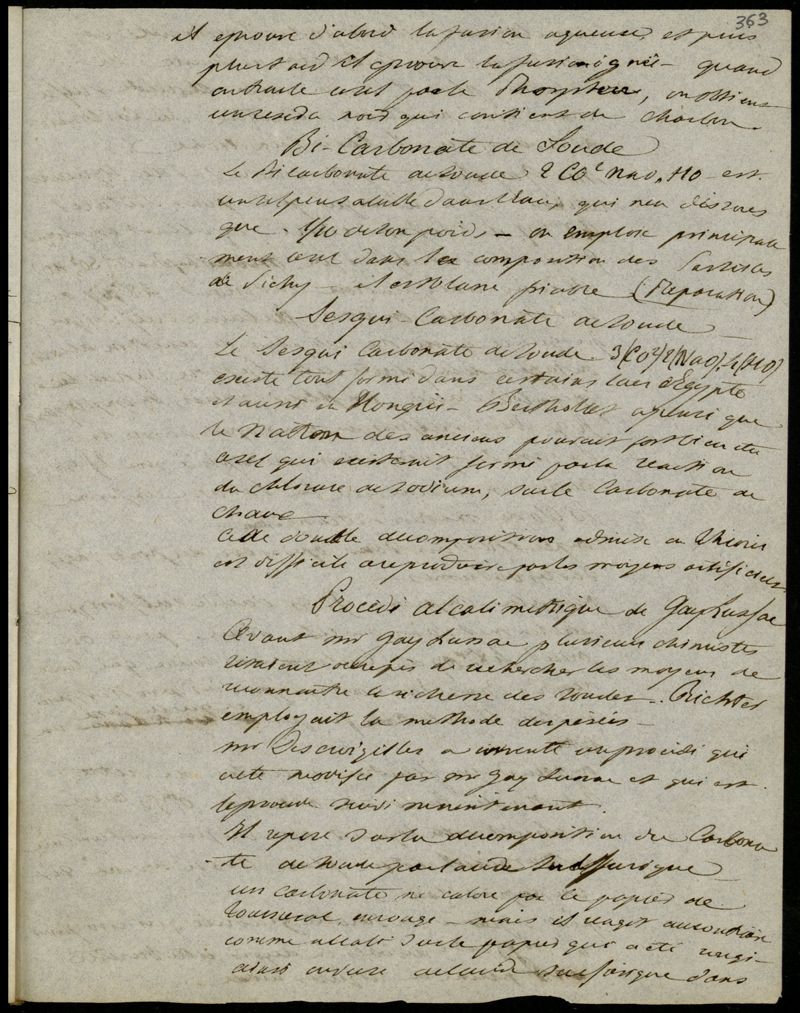 363
il eprouve d'abord la fusion aqueuse, et puis
plus tard il eprouve la fusion ignée - quand
on traite cesel par le Phosphore, on obtient
un residu noir qui contient du charbon.
Bi-Carbonate de Soude
Le Bicarbonate de soude 2 CO² NaO, HO - est
un sel peu soluble dans l'eau, qui n'en dissous
que 1/10 de son poids - on emploie principale
ment cesel dans la composition des Pastilles
de Vichy - il est blanc friable (Préparation)
Sesqui-Carbonate de soude
Le Sesqui Carbonate de soude 3(CO²) 2(NaO) 4(HO)
existe tout formé dans certains lacs d'Egypte
et aussi en Hongrie - Berthollet a pensé que
le Natron des anciens pourait
asel qui existerait formé par la reaction
du chlorure de sodium, sur le Carbonate de
chaux
Cette double decomposition admise en théorie
est difficile a reproduire par les moyens artificiels
Procédé alcalimetrique de Gay Lussac
Avant mr Gay Lussac plusieurs chimistes
s'etaient occupés de rechercher les moyens de
reconnaitre la richesse des soudes. Richter
employait la methode des pesées -
mr Descroizilles a inventé un procédé qui
a été modifié par mr Gay Lussac et qui est
le procédé suivi maintenant.
Il repose sur la decomposition du Carbona
te de soude par l'acide sulfurique
un carbonate ne colore pas le papier de
Tournesol en rouge - mais il reagit au contraire
comme alcali sur le papier qui a été rougi -
ainsi on verse de l'acide sulfurique dans